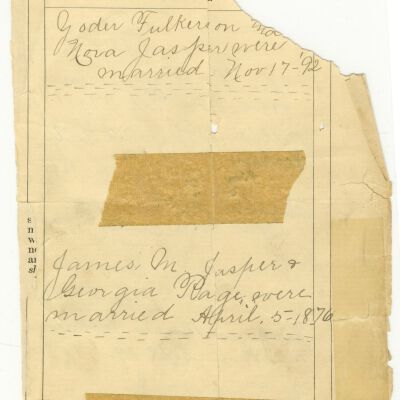 Yoder Fulkerson and
Nora Jasper were
married Nov 17-'92
James M Jasper &
Georgia Page, were
married April, 5-1876
s
n